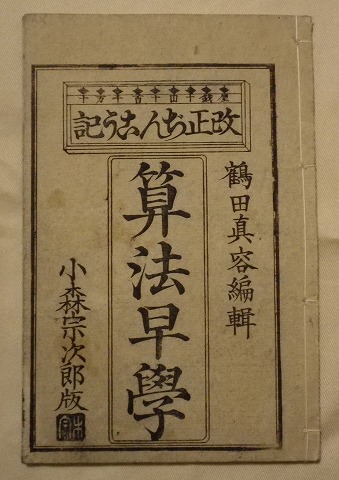 改正ぢんかう記
鶴田真容編輯
算法早學
小森宗次郎版